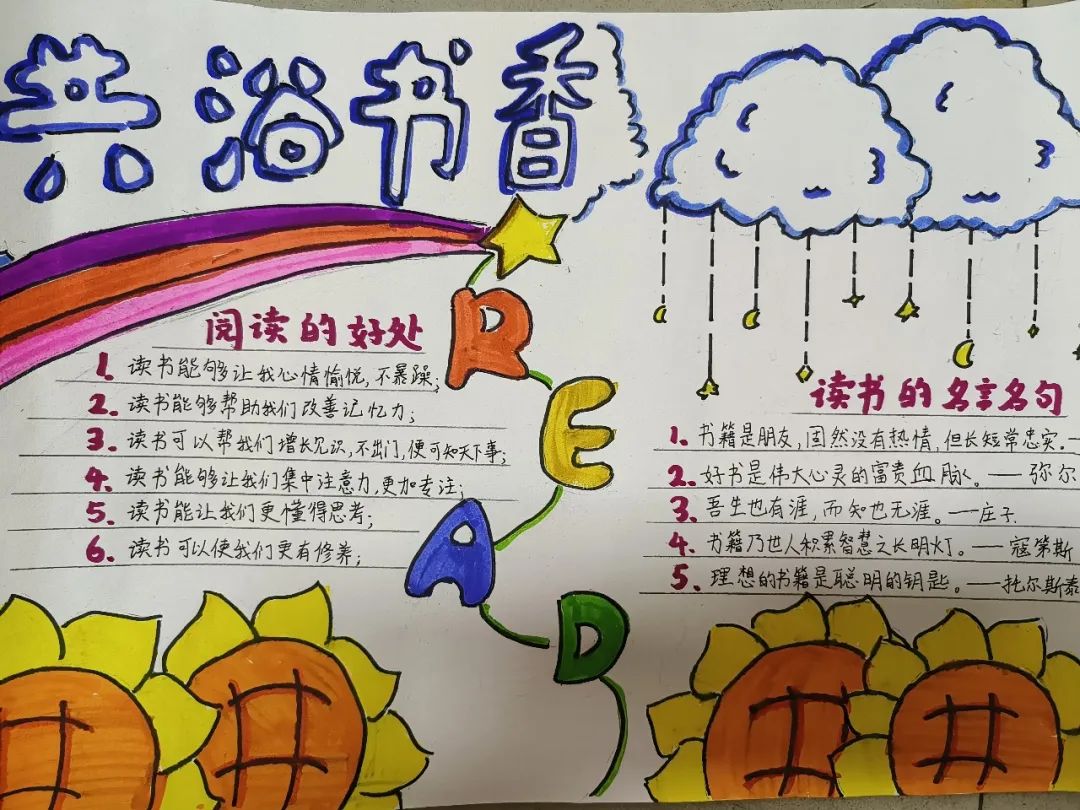 共浴书香
阅读的好处
1. 读书能够让我心情愉悦,不暴躁;
2. 读书能够帮助我们改善记忆力;
3. 读书可以帮我们增长见识,不出门,便可知天下事;
4. 读书能够让我们集中注意力,更加专注;
5. 读书能让我们更懂得思考;
6. 读书可以使我们更有修养;
READ
读书的名言名句
1. 书籍是朋友,固然没有热情,但长短常忠实.—
2. 好书是伟大心灵的富贵血脉。——弥尔
3. 吾生也有涯,而知也无涯。—庄子
4. 书籍乃世人积累智慧之长明灯。——寇第斯
5. 理想的书籍是聪明的钥匙。——托尔斯泰